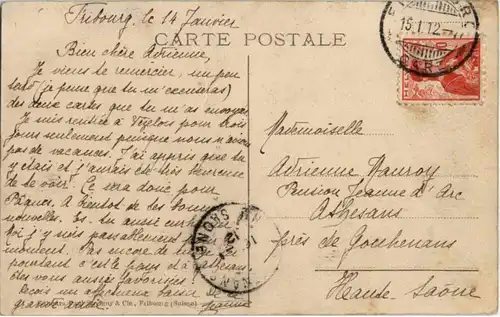 Fribourg, le 14 Janvier
CARTE POSTALE
Bien chère Adrienne,
Je viens te remercier, un peu
tard (je pense que tu m'excuseras)
des deux cartes que tu m'as envoyées
Je suis rentrée à pour trois
jours seulement puisque nous n'avons
pas de vacances. J'ai appris que tu
y étais et j'aurais été très heureuse
de te voir. Ce sera donc pour
Pâques, A bientôt de tes bonnes
nouvelles. Es-tu aussi
toi j'y suis passablement
moment. Pas encore de
pourtant c'est le pays
êtes vous aussi favorisés?
Reçois un affectueux baiser de ta
grande amie
Mademoiselle
Adrienne Mauroy
Pension Jeanne d'Arc
Athesans
près de Gouhenans
Haute-Saône
15.I.12
& Cie., Fribourg (Suisse)